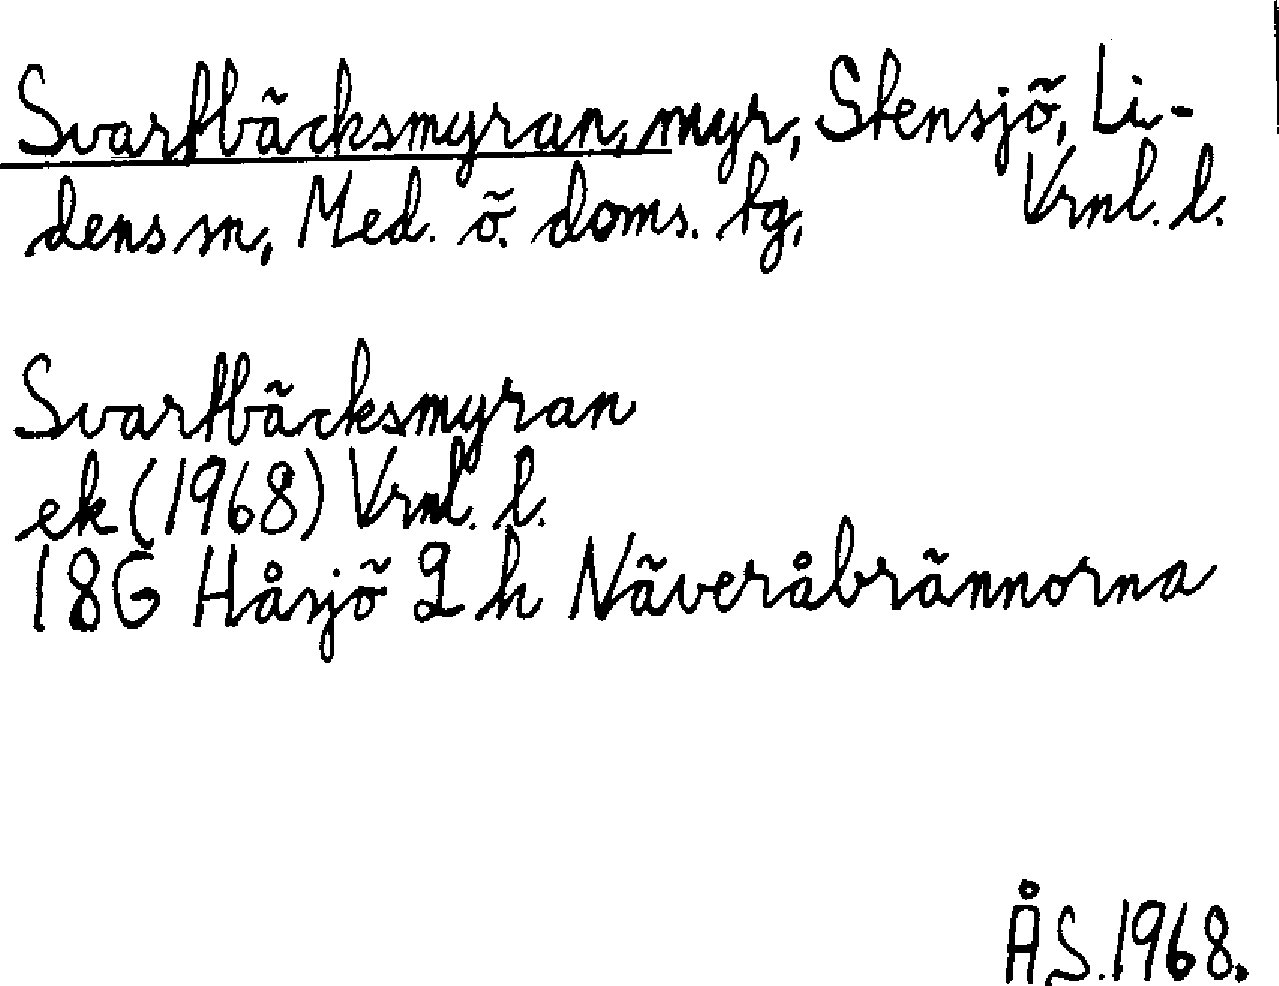 Svartbäcksmyran, myr, Stensjö, Li-
dens sn, Med. ö. doms. tg, Vrnl. l.
Svartbäcksmyran
ek (1968) Vrnl. l.
18G Håsjö 2 h Näveråbrännorna
ÅS. 1968.